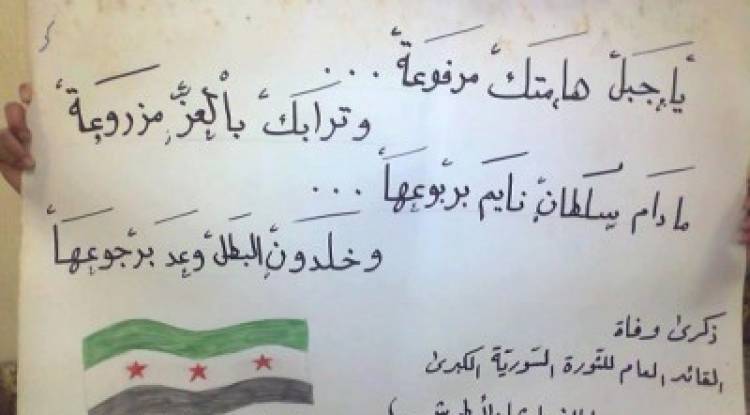 يا جبل هامتك مرفوعة ...
وترابك بالعز مزروعة
مادام سلطان نايم بربوعها ...
وخلدون البطل وعد برجوعها
ذكرى وفاة
القائد العام للثورة السورية الكبرى